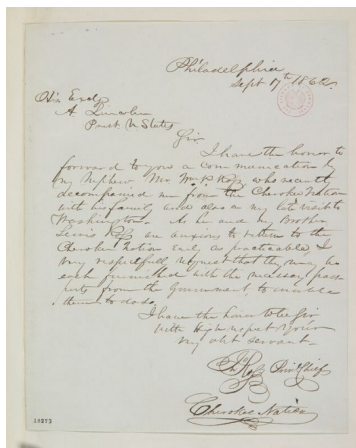 Philadelphia
Sept 17th 1862
His Excly
A Lincoln
Prest U States
Sir
I have the honor to
forward to you a communication by
my Nephew Mr Wm P Ross who recently
accompanied me from the Cherokee Nation
with his family and also on my late visit to
Washington. As he and my Brother
Lewis Ross are anxious to return to the
Cherokee Nation early as practicable, I
very respectfully request that they may be
each furnished with the necessary pass
ports from the Government to enable
them to do so.
I have the honor to be Sir
with high respect Your
my obt servant
Jno Ross Prin Chief
Cherokee Nation